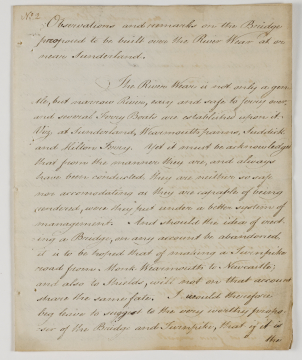 No 2
Observations and remarks on the Bridge
proposed to be built over the River Wear at or
near Sunderland.
The River Wear is not only a gen
tle, but narrow River, easy and safe to ferry over,
and several Ferry Boats are established upon it.
Viz. at Sunderland, Wearmouth panns, Suddick
and Hilton Ferry. Yet it must be acknowledged
that from the manner they are, and always
have been conducted, they are neither so safe
nor accomodating as they are capable of being
rendered, were they put under a better system of
management. And should the idea of erect
ing a Bridge, on any account be abandoned,
it is to be hoped that of making a Turnpike
road from Monk Wearmouth to Newcastle,
and also to Shields, will not on that account
share the same fate. I would therefore
beg leave to suggest to the very worthy propo
ser of the Bridge and Turnpike, that if it is
the